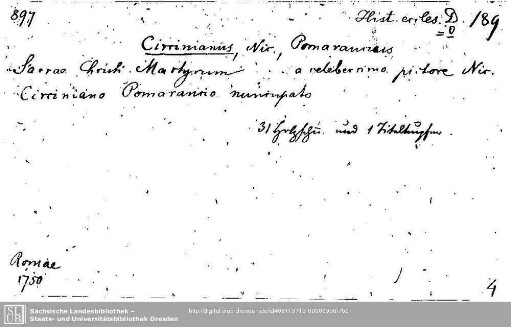 897
Hist. eccles. D. 189
0
Circinianus, Nic., Pomarancius
Sacrae Christi Martyrum .. a celeberrimo pictore Nic.
Circiniano Pomarancio nuncupato
31 Holzschn. und 1 Titelkupfer
Romae
1750
4
Sächsische Landesbibliothek –
Staats- und Universitätsbibliothek Dresden